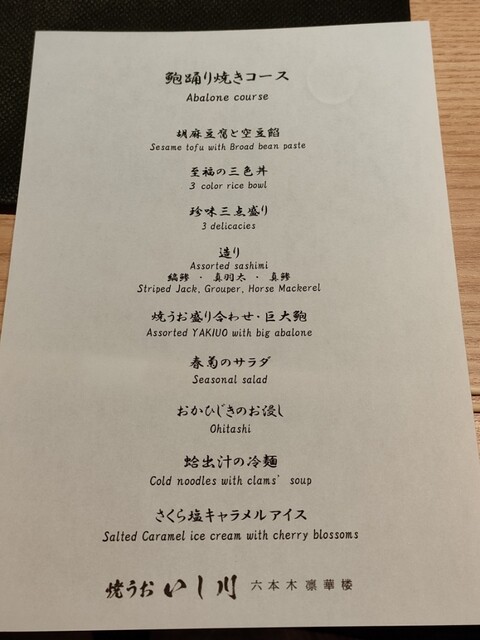 鮑踊り焼きコース
Abalone course
胡麻豆腐と空豆餡
Sesame tofu with Broad bean paste
至福の三色丼
3 color rice bowl
珍味三点盛り
3 delicacies
造り
Assorted sashimi
縞鯵 ・ 真羽太 ・ 真鯵
Striped Jack, Grouper, Horse Mackerel
焼うお盛り合わせ・巨大鮑
Assorted YAKIUO with big abalone
春菊のサラダ
Seasonal salad
おかひじきのお浸し
Ohitashi
蛤出汁の冷麺
Cold noodles with clams' soup
さくら塩キャラメルアイス
Salted Caramel ice cream with cherry blossoms
焼うお いし川 六本木 凛華楼